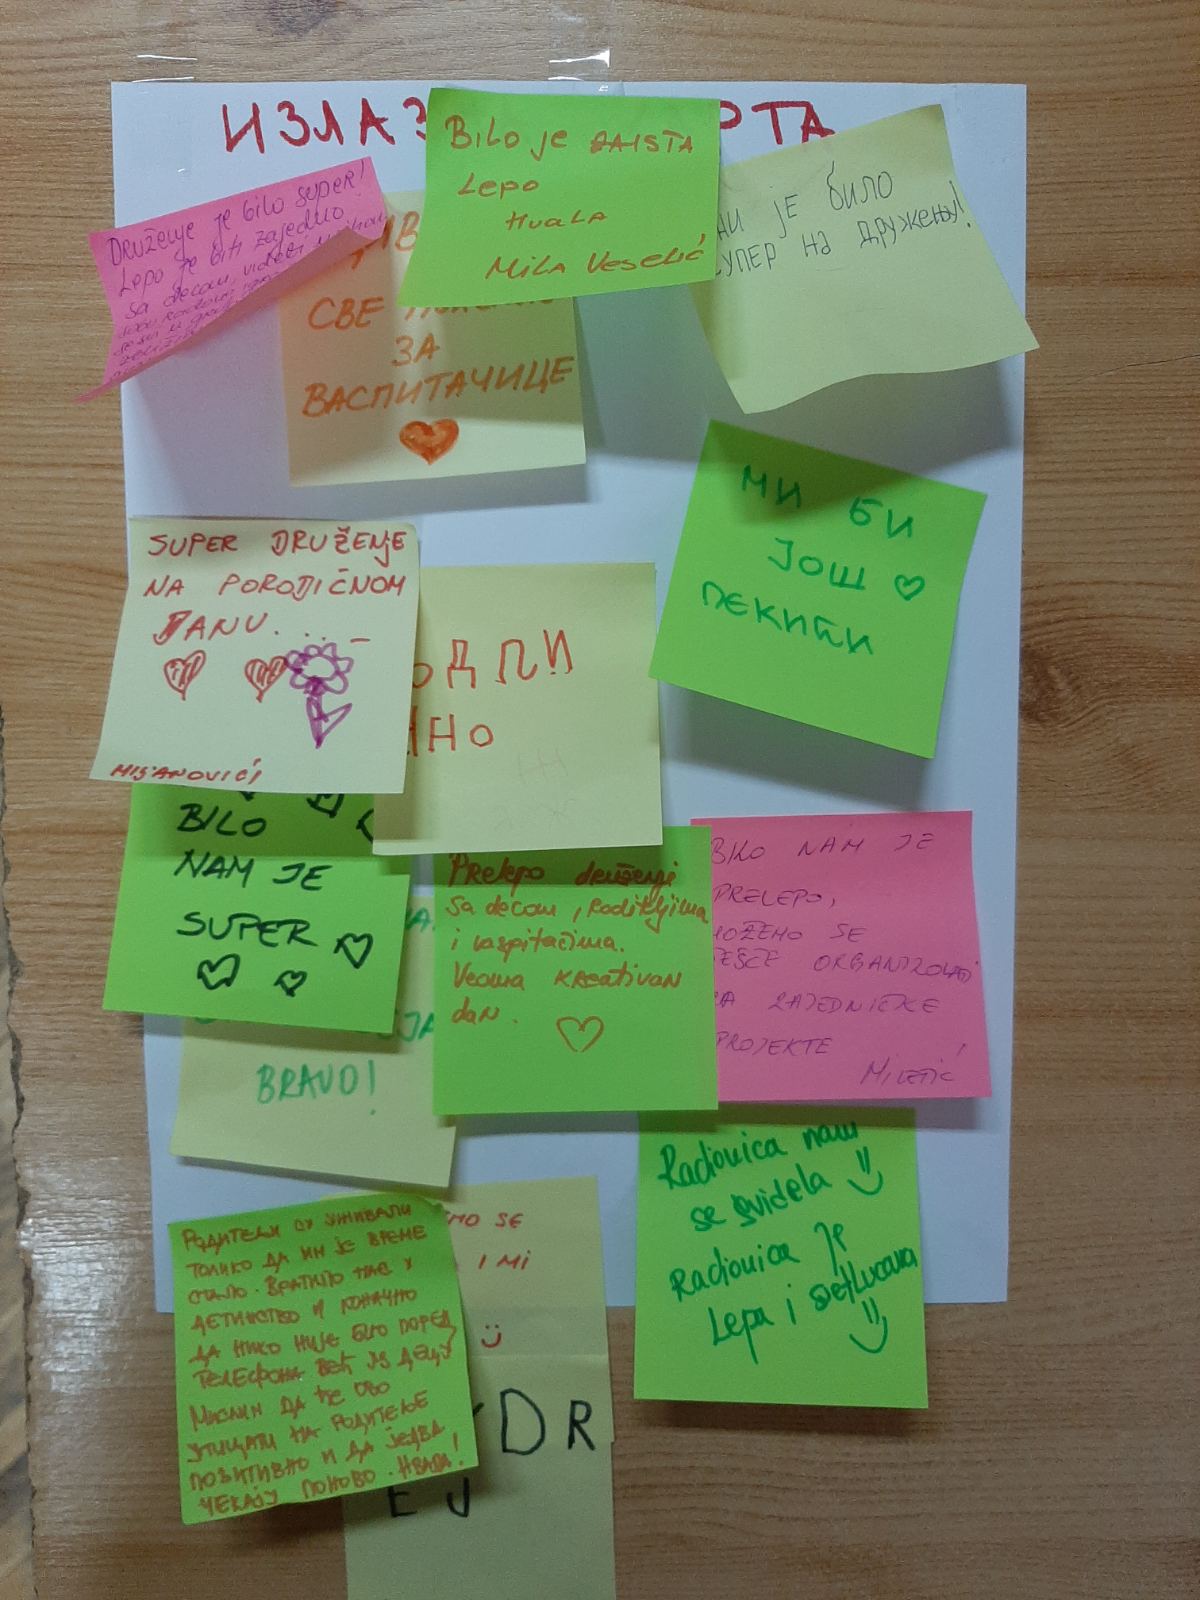 ИЗЛАЗ РТА
Druženje je bilo super!
Lepo je biti zajedno
sa decom, videti njihov
Bilo je ZAISTA
Lepo
HVALA
MILA Veselić
ЈЕ БИЛО
СУПЕР НА ДРУЖЕЊУ!
СВЕ
ЗА
ВАСПИТАЧИЦЕ
МИ БИ
ЈОШ
ПЕКИЋИ
SUPER DRUŽENJE
NA PORODIČNOM
DANU...
MIJANOVIĆI
BILO
NAM JE
SUPER
BRAVO!
Prelepo druženje
sa decom, roditeljima
i vaspitačima.
Veoma kreativan
dan.
BILO NAM JE
PRELEPO,
MOŽEMO SE
ČEŠĆE ORGANIZOVATI
ZA ZAJEDNIČKE
PROJEKTE!
MILETIĆ
Radionica nam
se svidela
Radionica je
Lepa i svetlucava
РОДИТЕЉИ СУ УЖИВАЛИ
ТОЛИКО ДА ИМ ЈЕ ВРЕМЕ
СТАЛО. ВРАТИЛО НАС У
ДЕТИЊСТВО И КОНАЧНО
ДА НИКО НИЈЕ БИО ПОРЕД
ТЕЛЕФОНА ВЕЋ УЗ ДЕЦУ
МИСЛИМ ДА ЋЕ ОВО
УТИЦАТИ НА РОДИТЕЉЕ
ПОЗИТИВНО И ДА ЈЕДВА
ЧЕКАЈУ ПОНОВО. ХВАЛА!
SE
I MI
DR
EJ